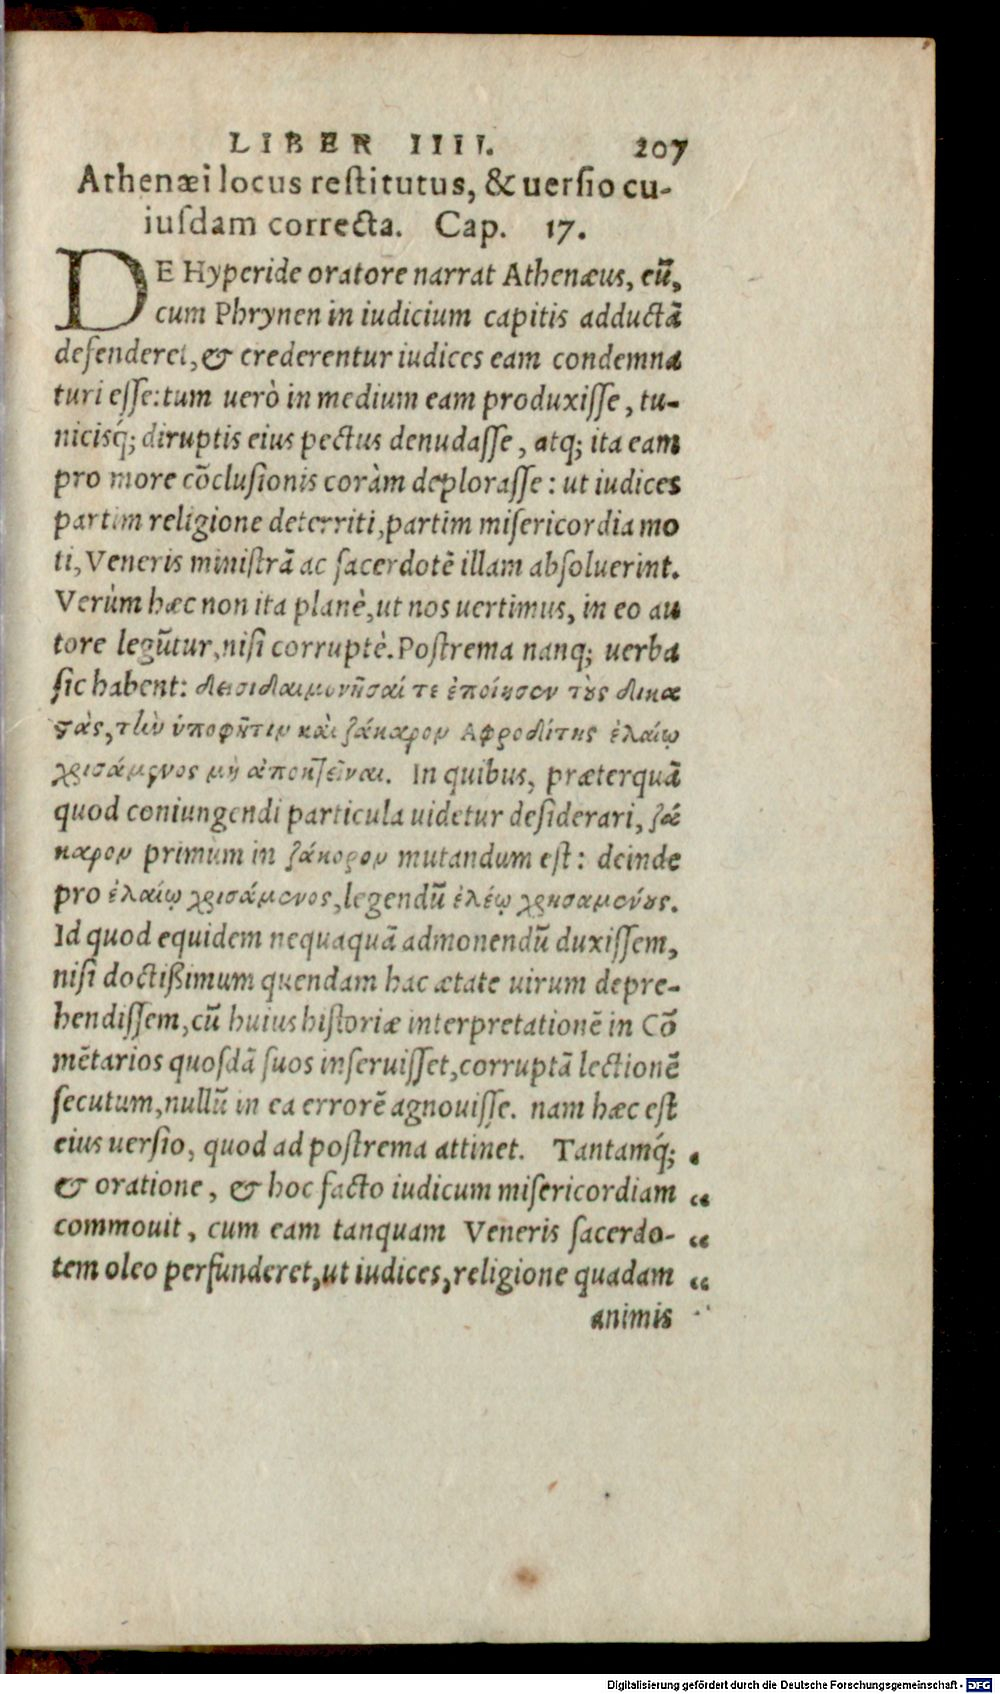 LIBER IIII. 207
Athenæi locus restitutus, & uersio cu-
iusdam correcta. Cap. 17.
DE Hyperide oratore narrat Athenæus, eū,
cum Phrynen in iudicium capitis adductā
defenderet, & crederentur iudices eam condemna
turi esse: tum uerò in medium eam produxisse, tu-
nicisq́; diruptis eius pectus denudasse, atq; ita eam
pro more cōclusionis coràm deplorasse: ut iudices
partim religione deterriti, partim misericordia mo
ti, Veneris ministrā ac sacerdotē illam absoluerint.
Verùm hæc non ita planè, ut nos uertimus, in eo au
tore legūtur, nisi corruptè. Postrema nanq; uerba
sic habent: δεισιδαιμονῆσαί τε ἐποίησεν τοὺς δικα
στὰς, τὴν ὑποφῆτιν καὶ ζάκαρον Αφροδίτης ἐλαίῳ
χρισάμενος μὴ ἀποκτεῖναι. In quibus, præterquā
quod coniungendi particula uidetur desiderari, ζά
καρον primùm in ζάκορον mutandum est: deinde
pro ἐλαίῳ χρισάμενος, legendū ἐλέῳ χρησαμένους.
Id quod equidem nequaquā admonendū duxissem,
nisi doctißimum quendam hac ætate uirum depre-
hendissem, cū huius historiæ interpretationē in Cō
mētarios quosdā suos inseruisset, corruptā lectionē
secutum, nullū in ea errorē agnouisse. nam hæc est
eius uersio, quod ad postrema attinet. Tantamq́; “
& oratione, & hoc facto iudicum misericordiam “
commouit, cum eam tanquam Veneris sacerdo- “
tem oleo perfunderet, ut iudices, religione quadam “
animis
Digitalisierung gefördert durch die Deutsche Forschungsgemeinschaft - DFG